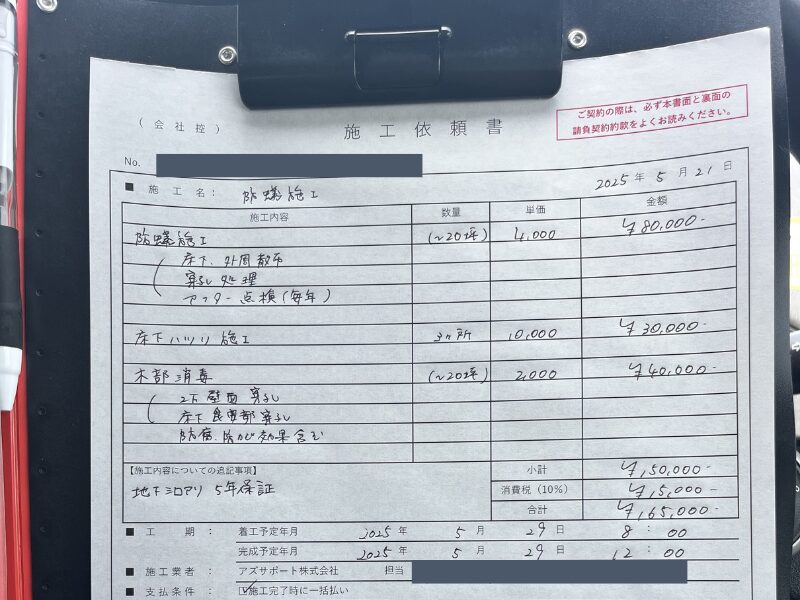 (会社控)
施工依頼書
ご契約の際は、必ず本書面と裏面の
請負契約約款をよくお読みください。
No.
2025年5月21日
■施工名: 防蟻施工
施工内容 数量 単価 金額
防蟻施工 (~20坪) 4,000 ¥80,000-
床下、外周散布
穿孔処理
アフター点検(毎年)
床下ハツリ施工 3ヶ所 10,000 ¥30,000-
木部消毒 (~20坪) 2,000 ¥40,000-
壁面穿孔
床下食害部穿孔
防腐、防カビ効果含む
【施工内容についての追記事項】 小計 ¥150,000-
地下シロアリ 5年保証 消費税(10%) ¥15,000-
合計 ¥165,000-
■工期: 着工予定年月 2025年5月29日 8:00
完成予定年月 2025年5月29日 12:00
■施工業者: アズサポート株式会社 担当
■支払条件: ☑施工完了時に一括払い